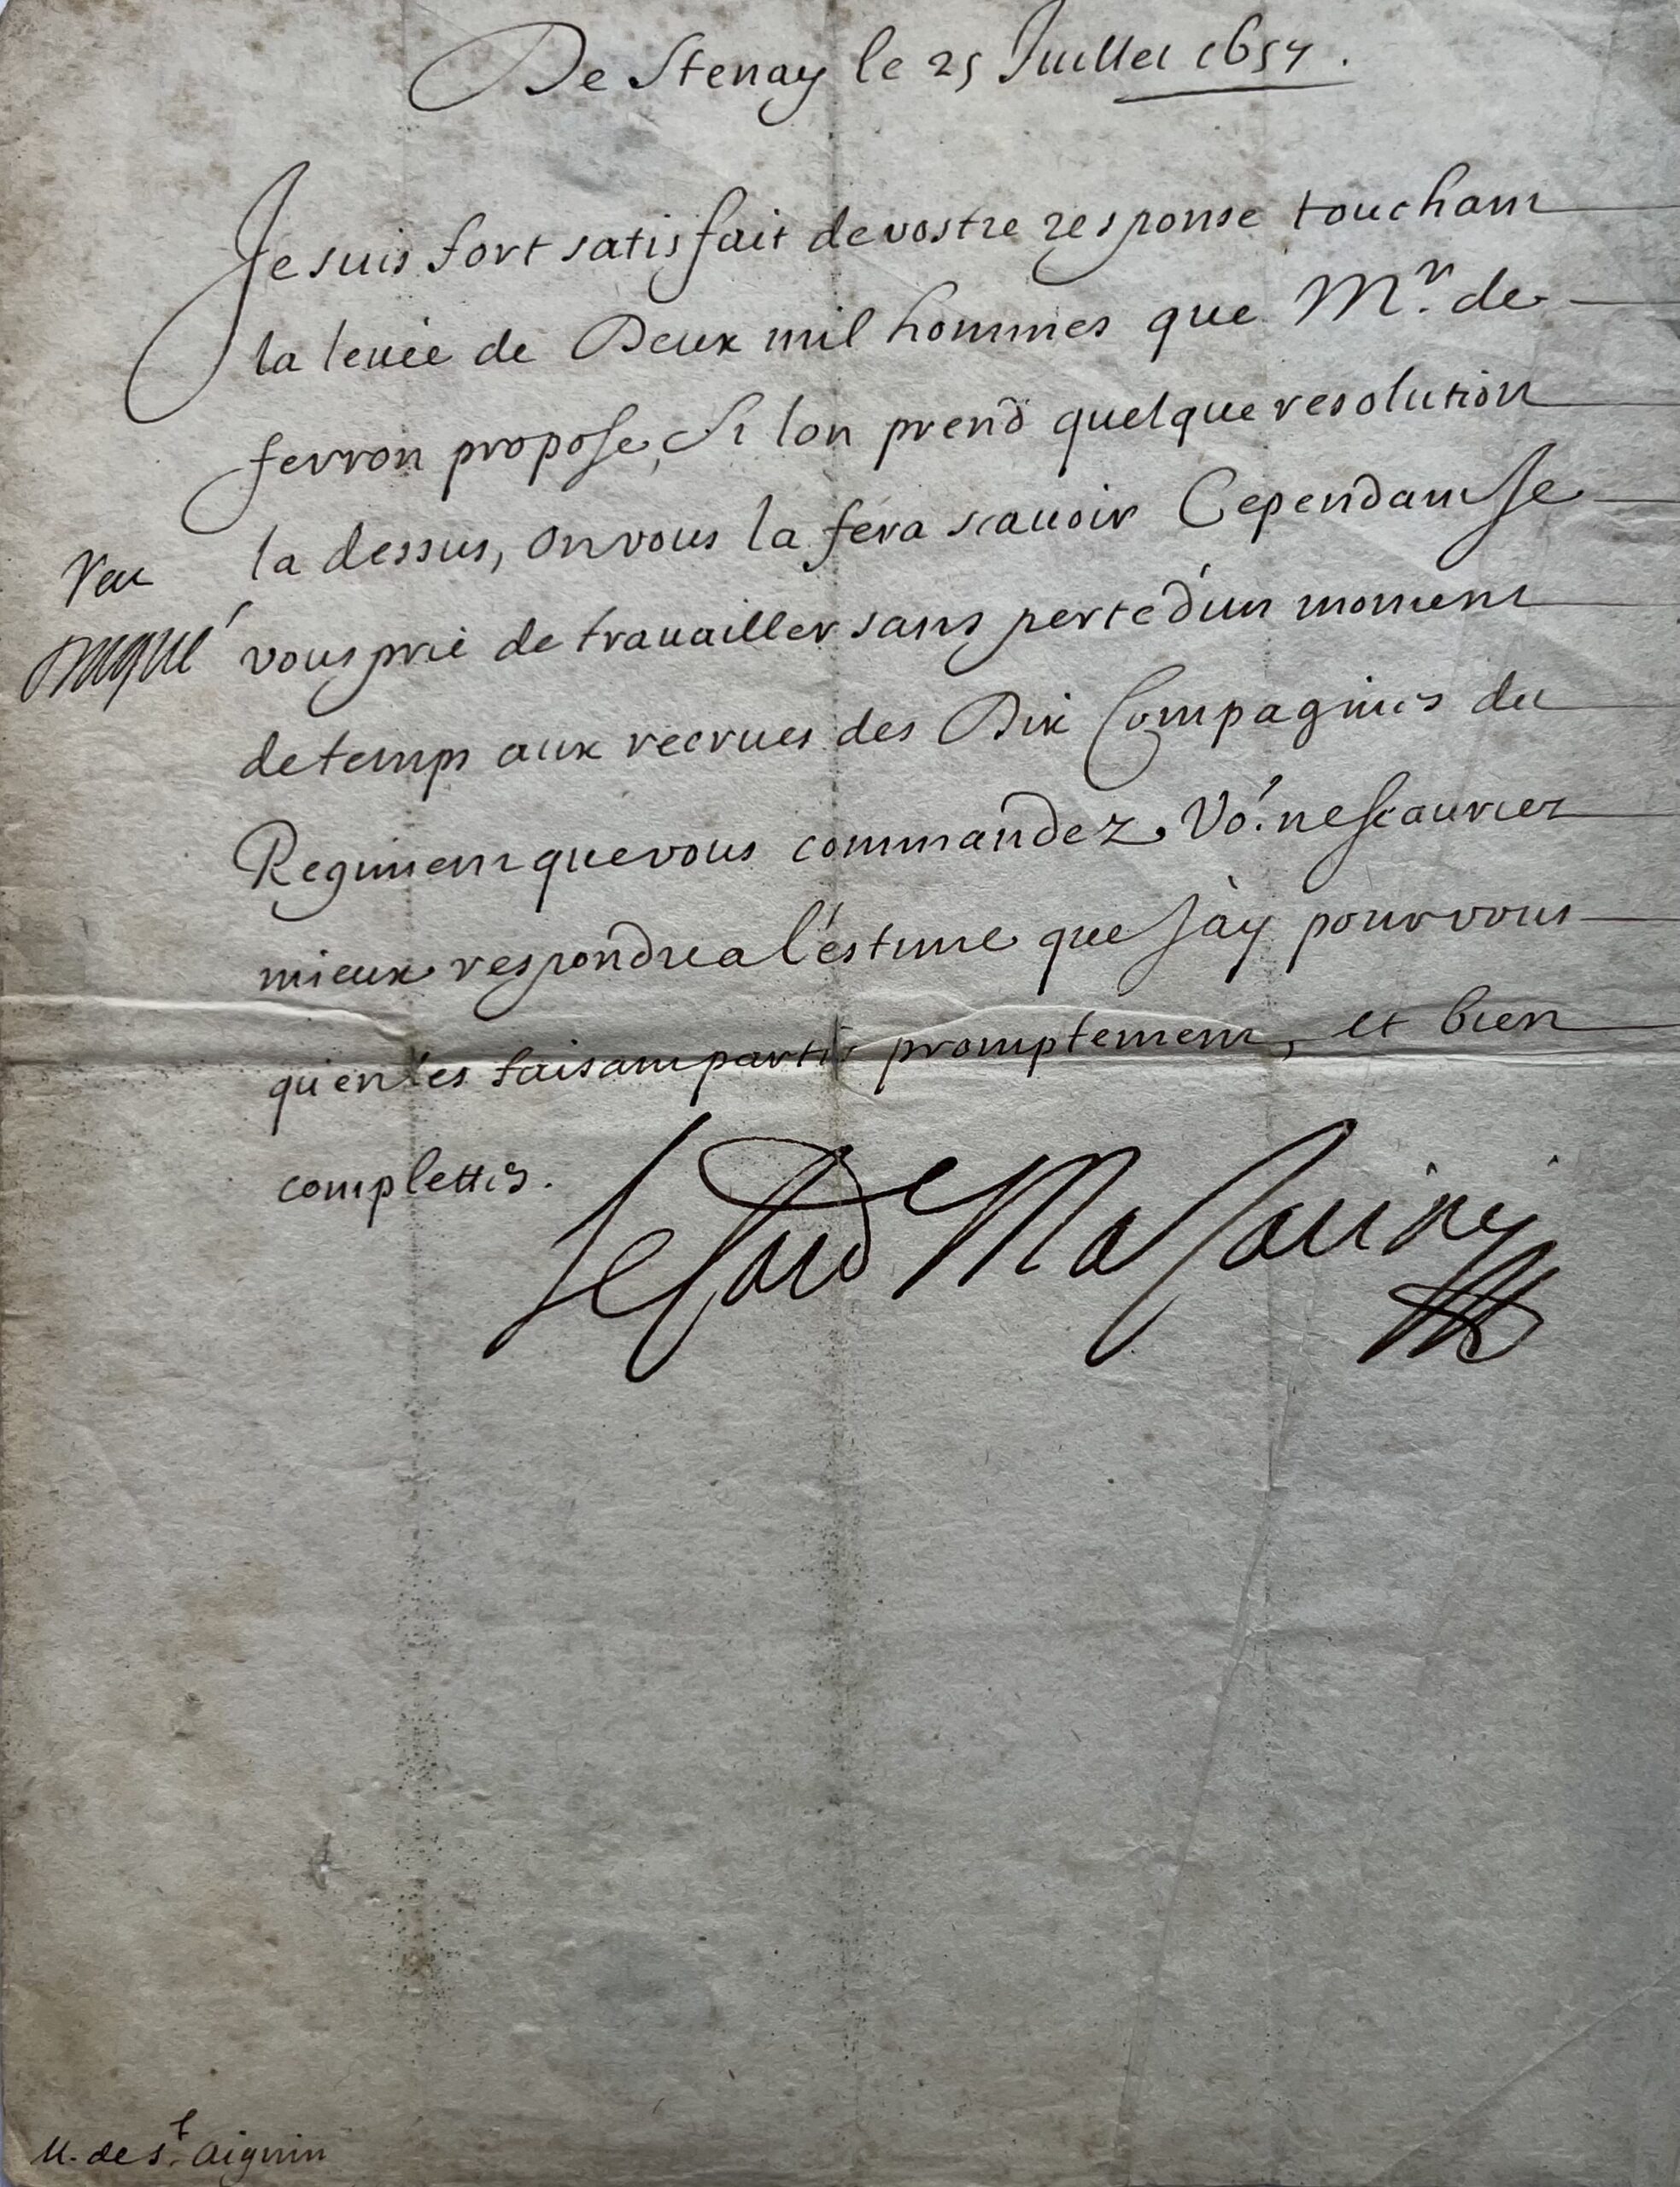 De Stenay le 25 Juillet 1657.
Je suis fort satisfait de vostre response touchant
la leuée de Deux mil hommes que Mr. de
ferron propose, Si lon prend quelque resolution
la dessus, on vous la fera scauoir Cependant Je
vous prie de trauailler sans perte d'un moment
de temps aux recrues des Dix Compagnies du
Regiment que vous commandez. Vo. ne scauriez
mieux respondre a l'estime que J'ay pour vous
qu'en les faisant partir promptement, et bien
complettes.
le Card Mazarini
M. de St. Aignin